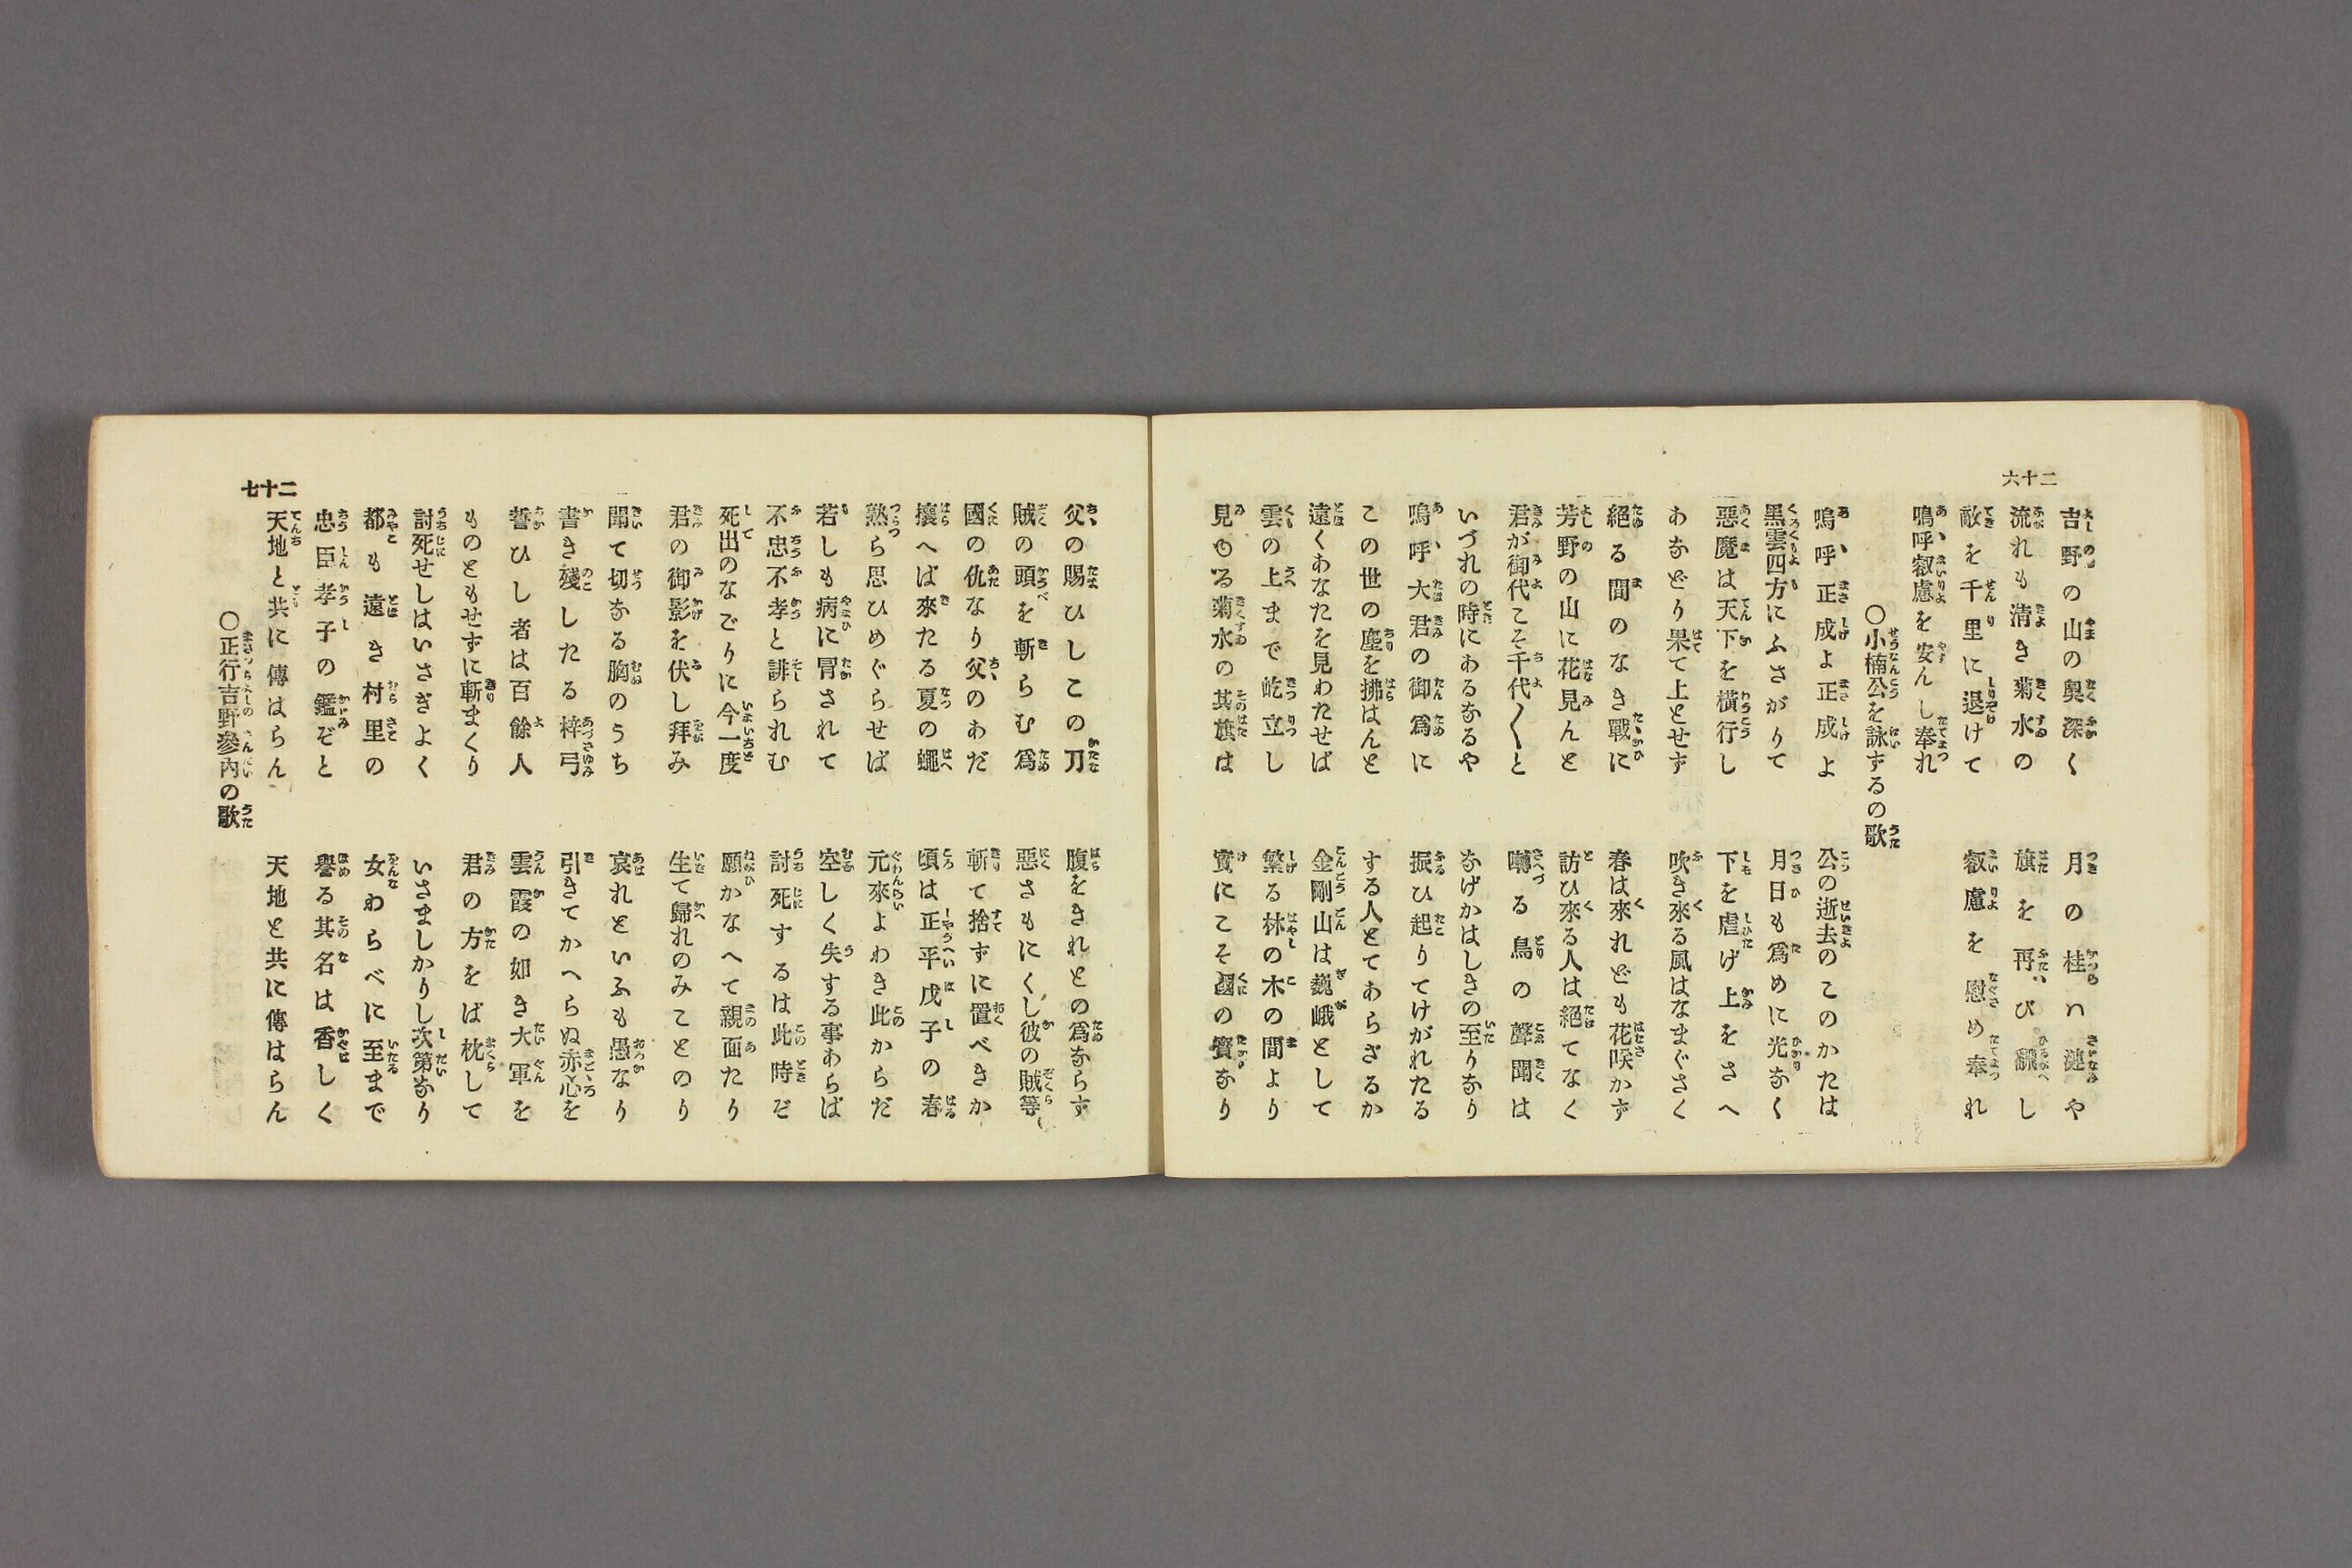 二十六
吉野の山の奥深く　月の桂の漣や
流れも清き菊水の　旗を再び飜し
敵を千里に退けて　叡慮を慰め奉れ
嗚呼叡慮を安んし奉れ
〇小楠公を詠ずるの歌
嗚呼正成よ正成よ　公の逝去のこのかたは
黑雲四方にふさがりて　月日も爲めに光なく
惡魔は天下を横行し　下を虐げ上をさへ
あなどり果て上とせず　吹き來る風はなまぐさく
絕る間のなき戰に　春は來れども花咲かず
芳野の山に花見んと　訪ひ來る人は絕てなく
君が御代こそ千代〱と　囀づる鳥の聲聞くは
いづれの時にあるなるや　なげかはしきの至りなり
嗚呼大君の御爲に　振ひ起りてけがれたる
この世の塵を拂はんと　する人とてあらざるか
遠くあなたを見わたせば　金剛山は巍峨として
雲の上まで屹立し　繁る林の木の間より
見ゆる菊水の其旗は　實にこそ國の寶なり
父の賜ひしこの刀　腹をきれとの爲ならず
賊の頭を斬らむ爲　惡さもにくし彼の賊等
國の仇なり父のあだ　斬て捨ずに置べきか
攘へば來たる夏の蠅　頃は正平戊子の春
熟ら思ひめぐらせば　元來よわき此からだ
若しも病に冐されて　空しく失する事あらば
不忠不孝と誹られむ　討死するは此時ぞ
死出のなごりに今一度　願かなへて親面たり
君の御影を伏し拜み　生て歸れのみことのり
聞て切なる胸のうち　哀れといふも愚なり
書き殘したる梓弓　引きてかへらぬ赤心を
誓ひし者は百餘人　雲霞の如き大軍を
ものともせずに斬まくり　君の方をば枕して
討死せしはいさぎよく　いさましかりし次第なり
都も遠き村里の　女わらべに至まで
忠臣孝子の鑑ぞと　譽る其名は香しく
天地と共に傳はらん　天地と共に傳はらん
〇正行吉野參內の歌
二十七